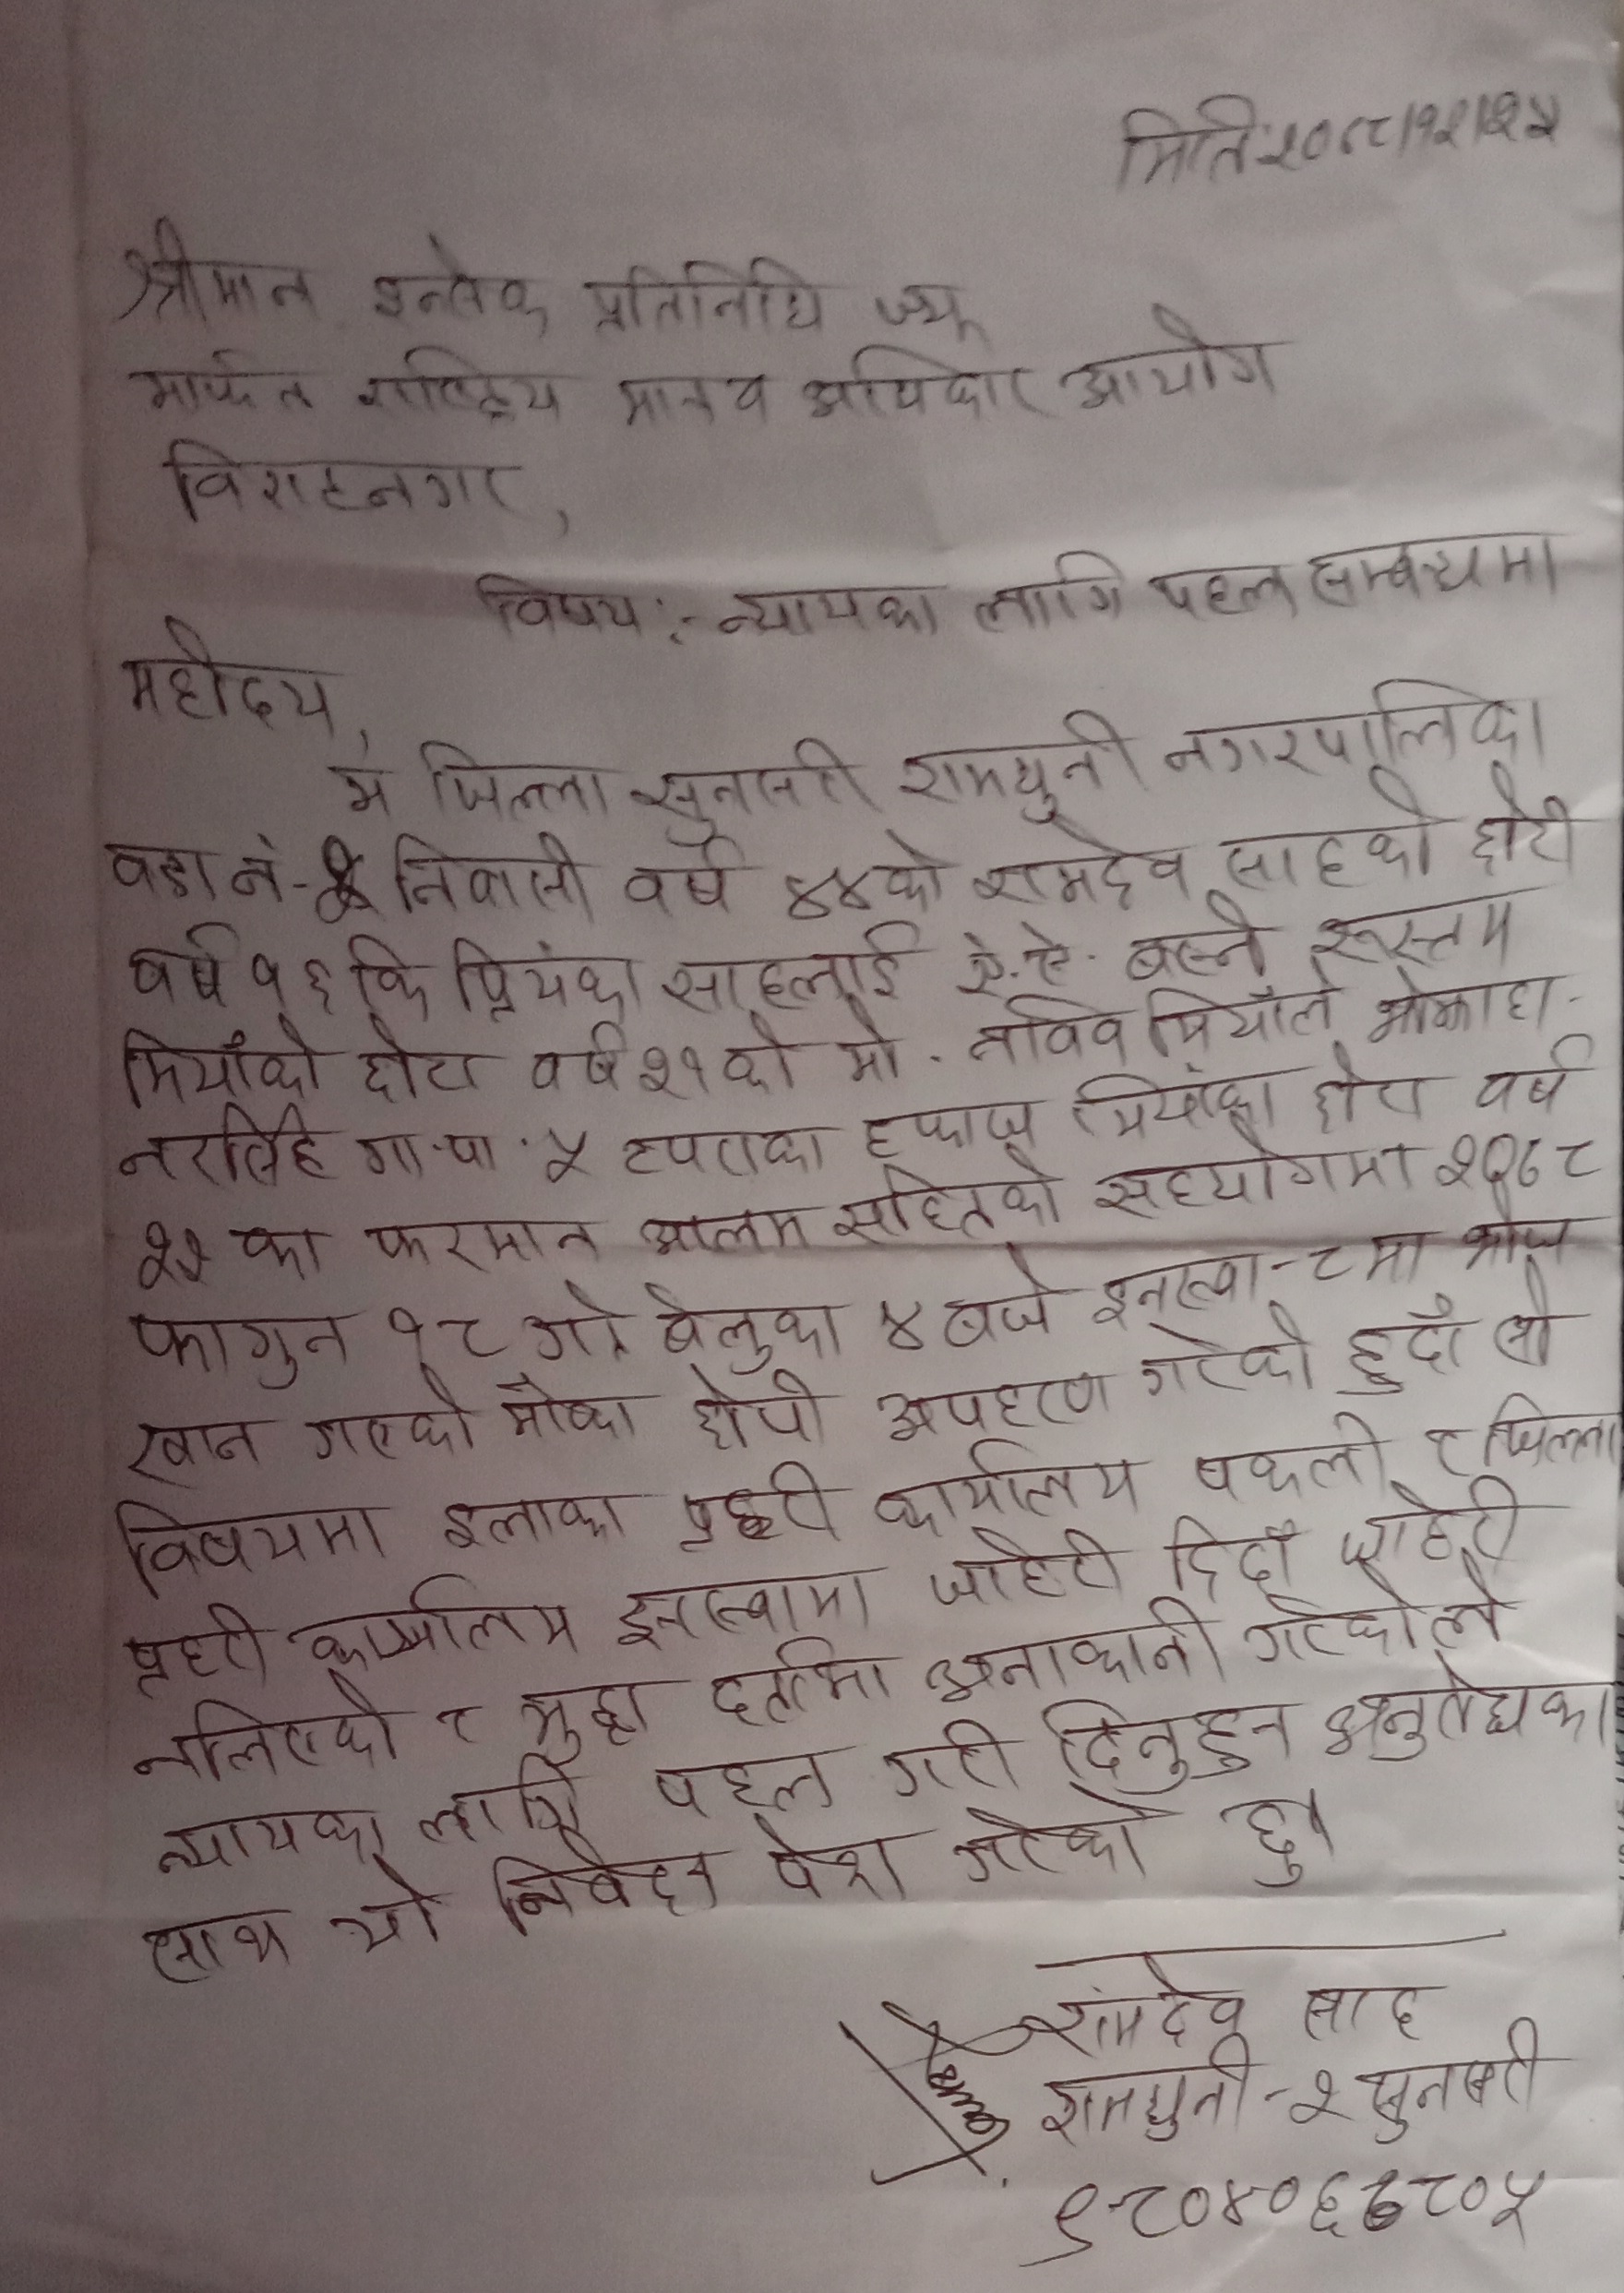 मिति २०७८।१२।१५
श्रीमान इन्सेक प्रतिनिधि ज्यू
मार्फत राष्ट्रिय मानव अधिकार आयोग
विराटनगर,
विषय :- न्यायका लागि पहल सम्बन्धमा
महोदय,
म जिल्ला सुनसरी रामधुनी नगरपालिका
वडा नं- निवासी वर्ष ४४को रामदेव साहको छोरी
वर्ष १६ कि प्रियंका साहलाई ऐ.ऐ. बस्ने रूस्तम
मियाँको छोरा वर्ष २१ को मो. नविव मियाँले भोक्राहा-
नरसिंह गा.पा.५ टपराका मियाँका छोरा वर्ष
२२ का फरमान आलम सहितको सहयोगमा २०७८
फागुन १८ गते बेलुका ४ बजे इनरुवा-८ मा भोज
खान गएको मौका छोपी अपहरण गरेको हुदाँ सो
विषयमा इलाका प्रहरी कार्यालय चकली र जिल्ला
प्रहरी कार्यालय इनरुवामा जाहेरी दिदाँ जाहेरी
नलिएको र मुद्दा दर्तामा अनाकानी गरेकोले
न्यायका लागि पहल गरी दिनुहुन अनुरोधका
साथ यो निवेदन पेश गरेको छु।
रामदेव साह
रामधुनी-२ सुनसरी
९८०४०६७८०५